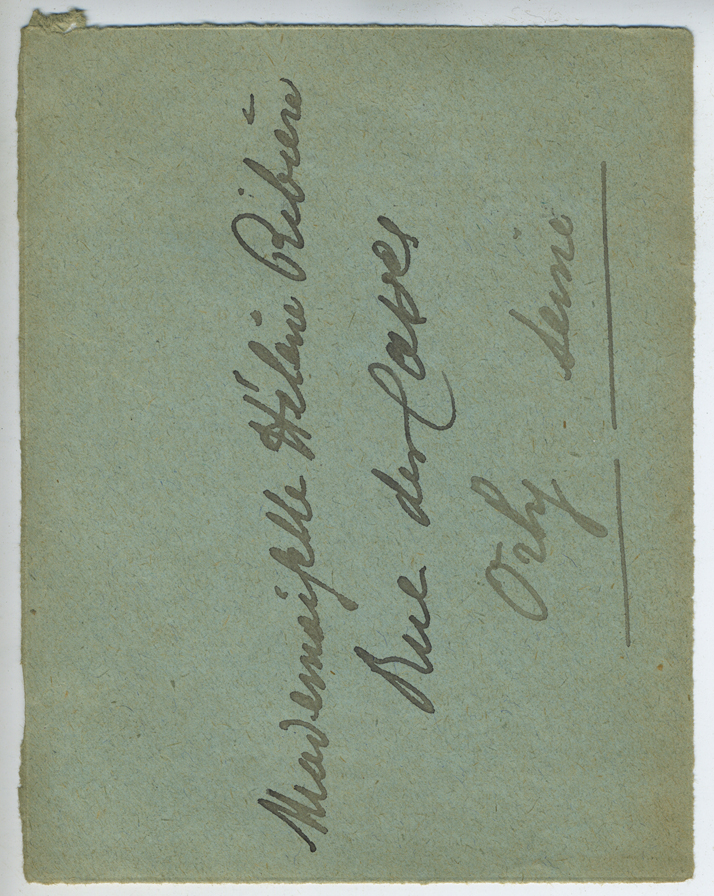 Mademoiselle Hélène Ribière
Rue des Caves
Orly Seine